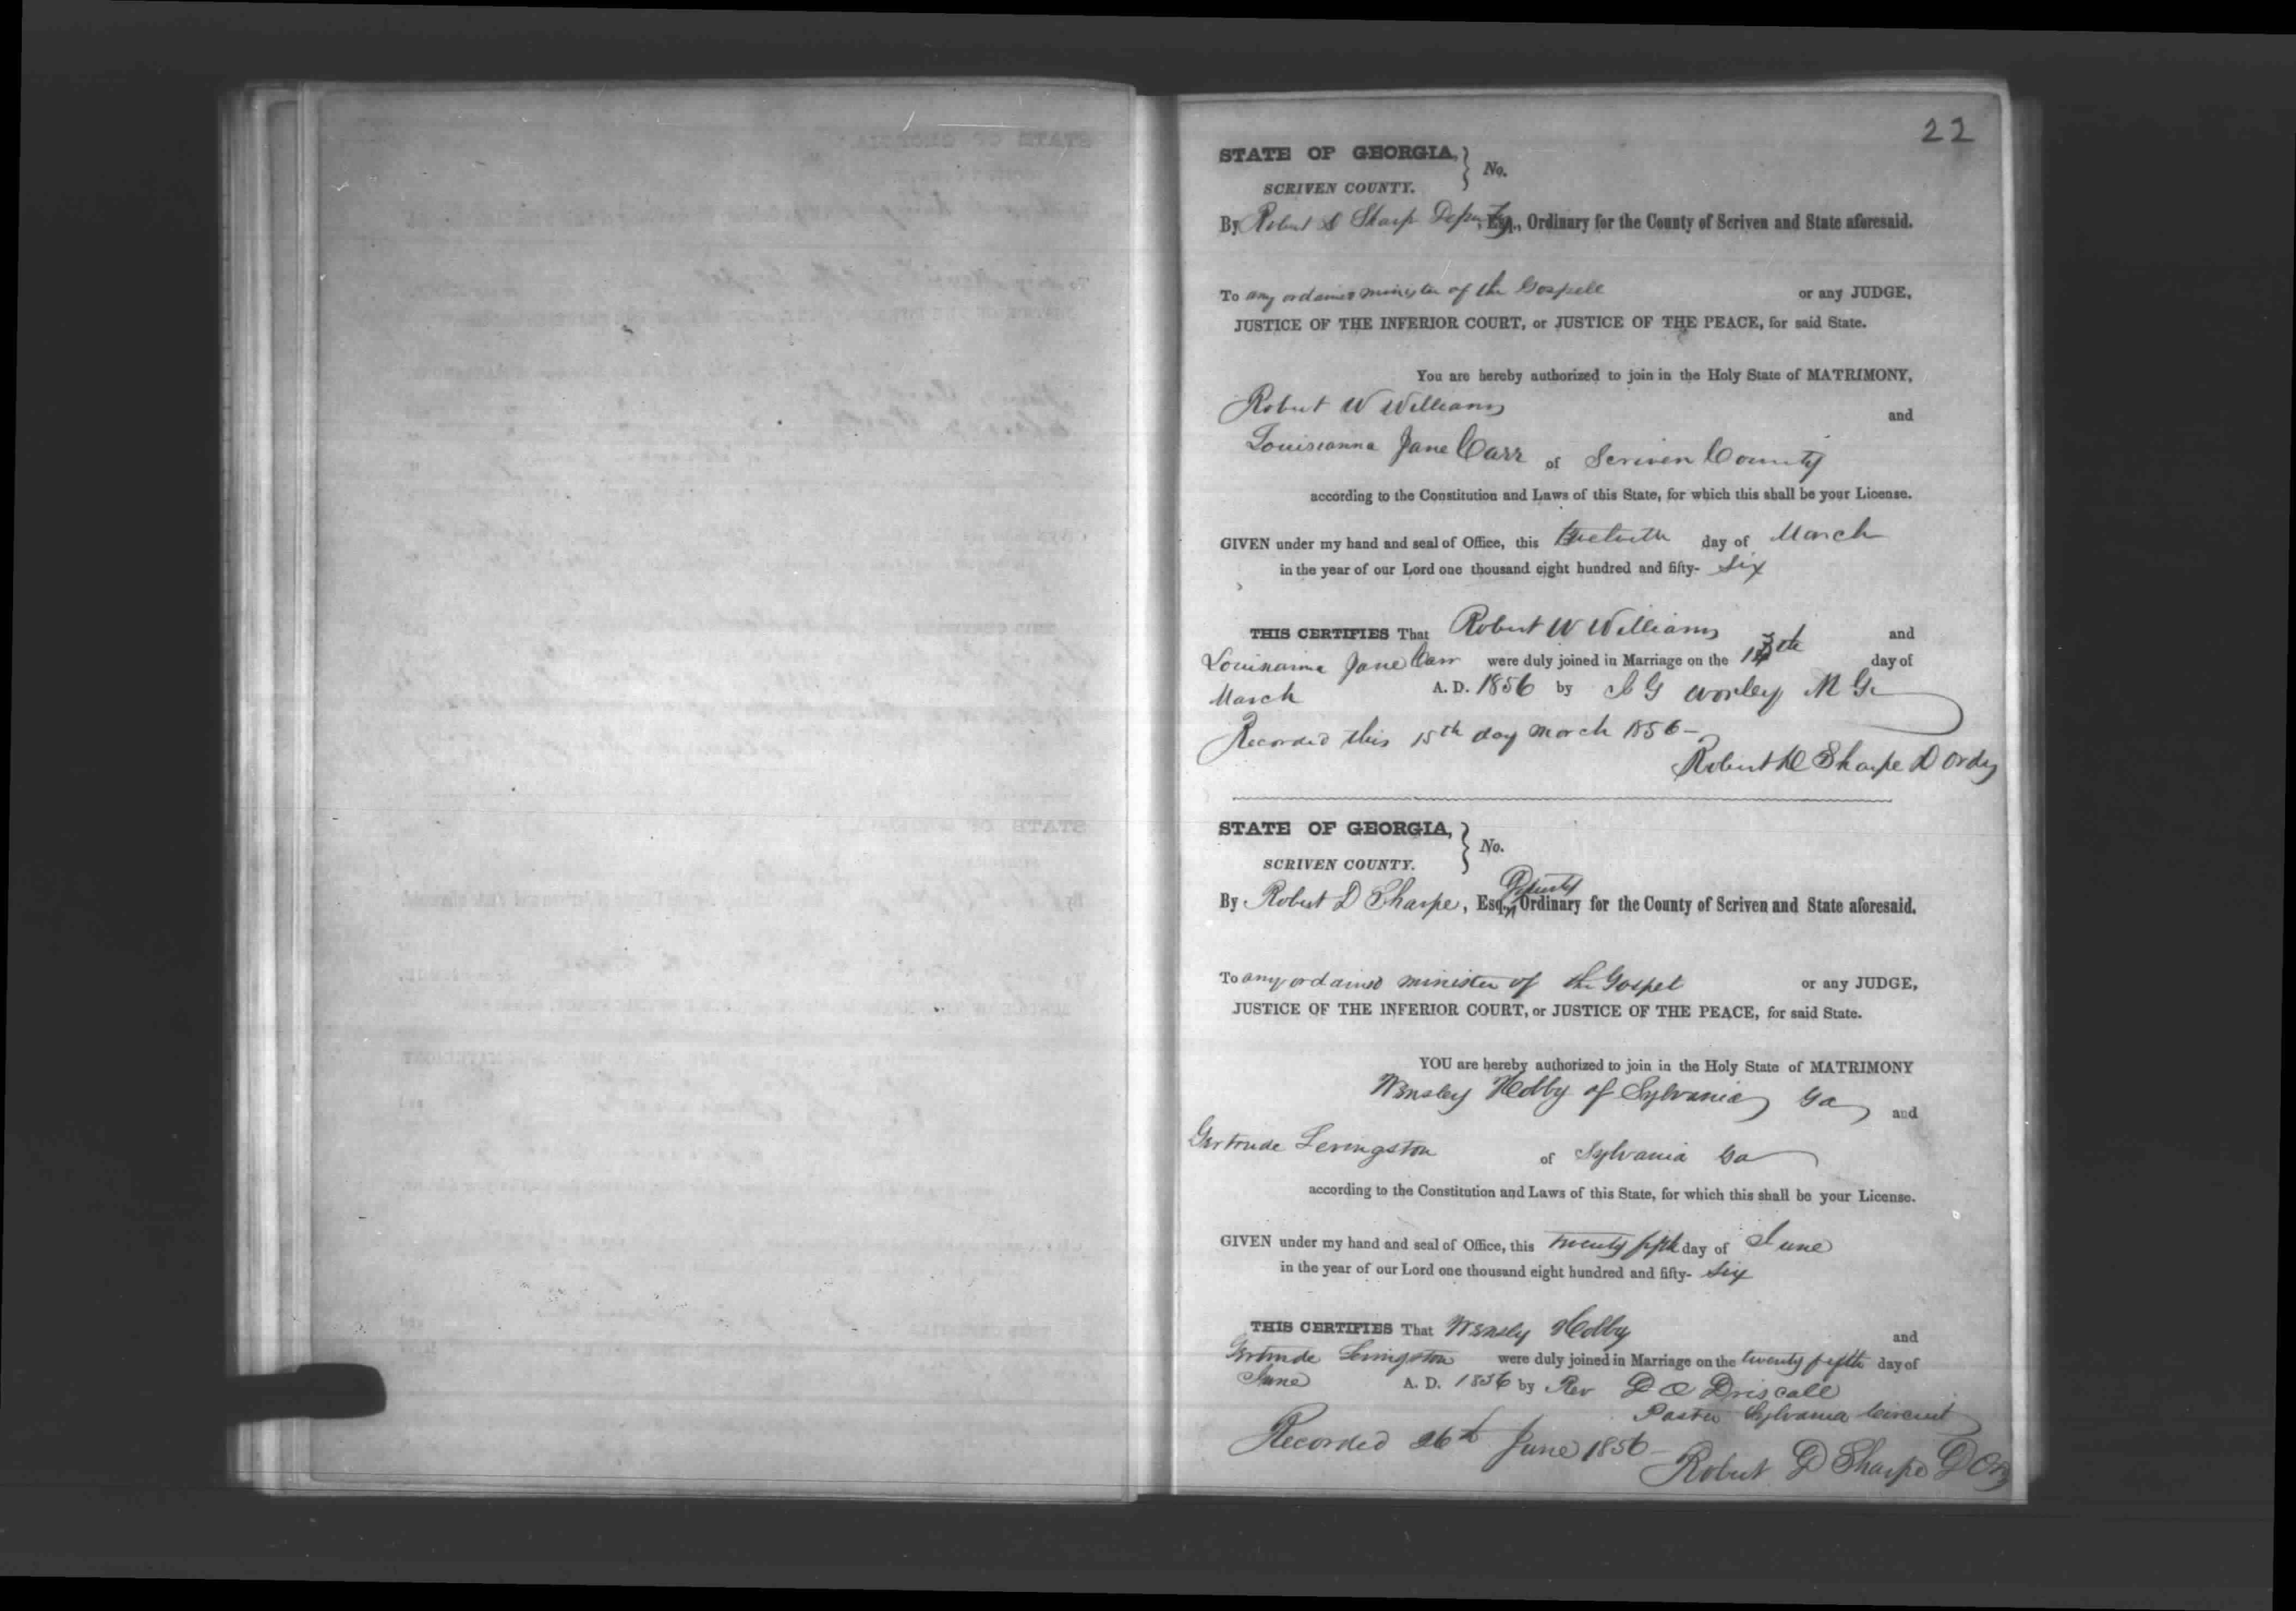 22
STATE OF GEORGIA, } No.
SCRIVEN COUNTY.
By Robert D Sharp Deputy, Esq., Ordinary for the County of Scriven and State aforesaid.
To any ordained minister of the Gospell or any JUDGE,
JUSTICE OF THE INFERIOR COURT, or JUSTICE OF THE PEACE, for said State.
You are hereby authorized to join in the Holy State of MATRIMONY,
Robert W Williams and
Louisianna Jane Carr of Scriven County
according to the Constitution and Laws of this State, for which this shall be your License.
GIVEN under my hand and seal of Office, this day of March
in the year of our Lord one thousand eight hundred and fifty- Six
THIS CERTIFIES That Robert W Williams and
Louisianna Jane Carr were duly joined in Marriage on the 13th day of
March A. D. 1856 by G Worley M G
Recorded this 15th day March 1856 -
Robert D Sharpe D Ordy
STATE OF GEORGIA, } No.
SCRIVEN COUNTY.
By Robert D Sharpe, Esq., Deputy Ordinary for the County of Scriven and State aforesaid.
To any ordained minister of the Gospel or any JUDGE,
JUSTICE OF THE INFERIOR COURT, or JUSTICE OF THE PEACE, for said State.
YOU are hereby authorized to join in the Holy State of MATRIMONY
Wensley Hobby of Sylvania Ga and
Gertrude Levingston of Sylvania Ga
according to the Constitution and Laws of this State, for which this shall be your License.
GIVEN under my hand and seal of Office, this twenty fifth day of June
in the year of our Lord one thousand eight hundred and fifty- Six
THIS CERTIFIES That Wensly Hobby and
Gertrude Levingston were duly joined in Marriage on the twenty fifth day of
June A. D. 1856 by Rev D O Driscall
Pastor Sylvania Circuit
Recorded 26th June 1856 -
Robert D Sharpe D Ordy